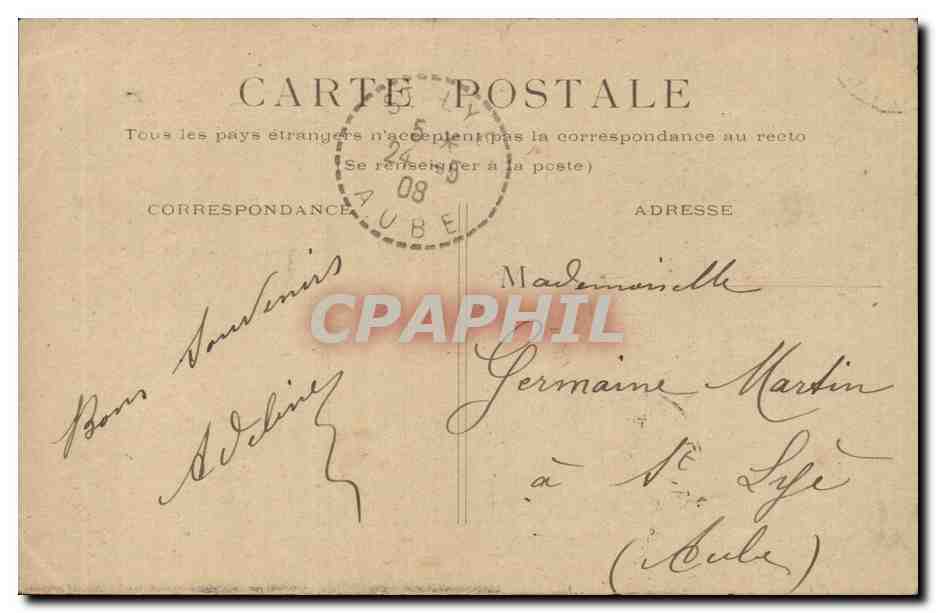 CARTE POSTALE
Tous les pays étrangers n'acceptent pas la correspondance au recto
(Se renseigner à la poste)
ST LYÉ
5 *
24 -5
08
AUBE
CORRESPONDANCE
Bons Souvenirs
Adeline
ADRESSE
Mademoiselle
Germaine Martin
à St. Lyé
(Aube)
CPAPHIL